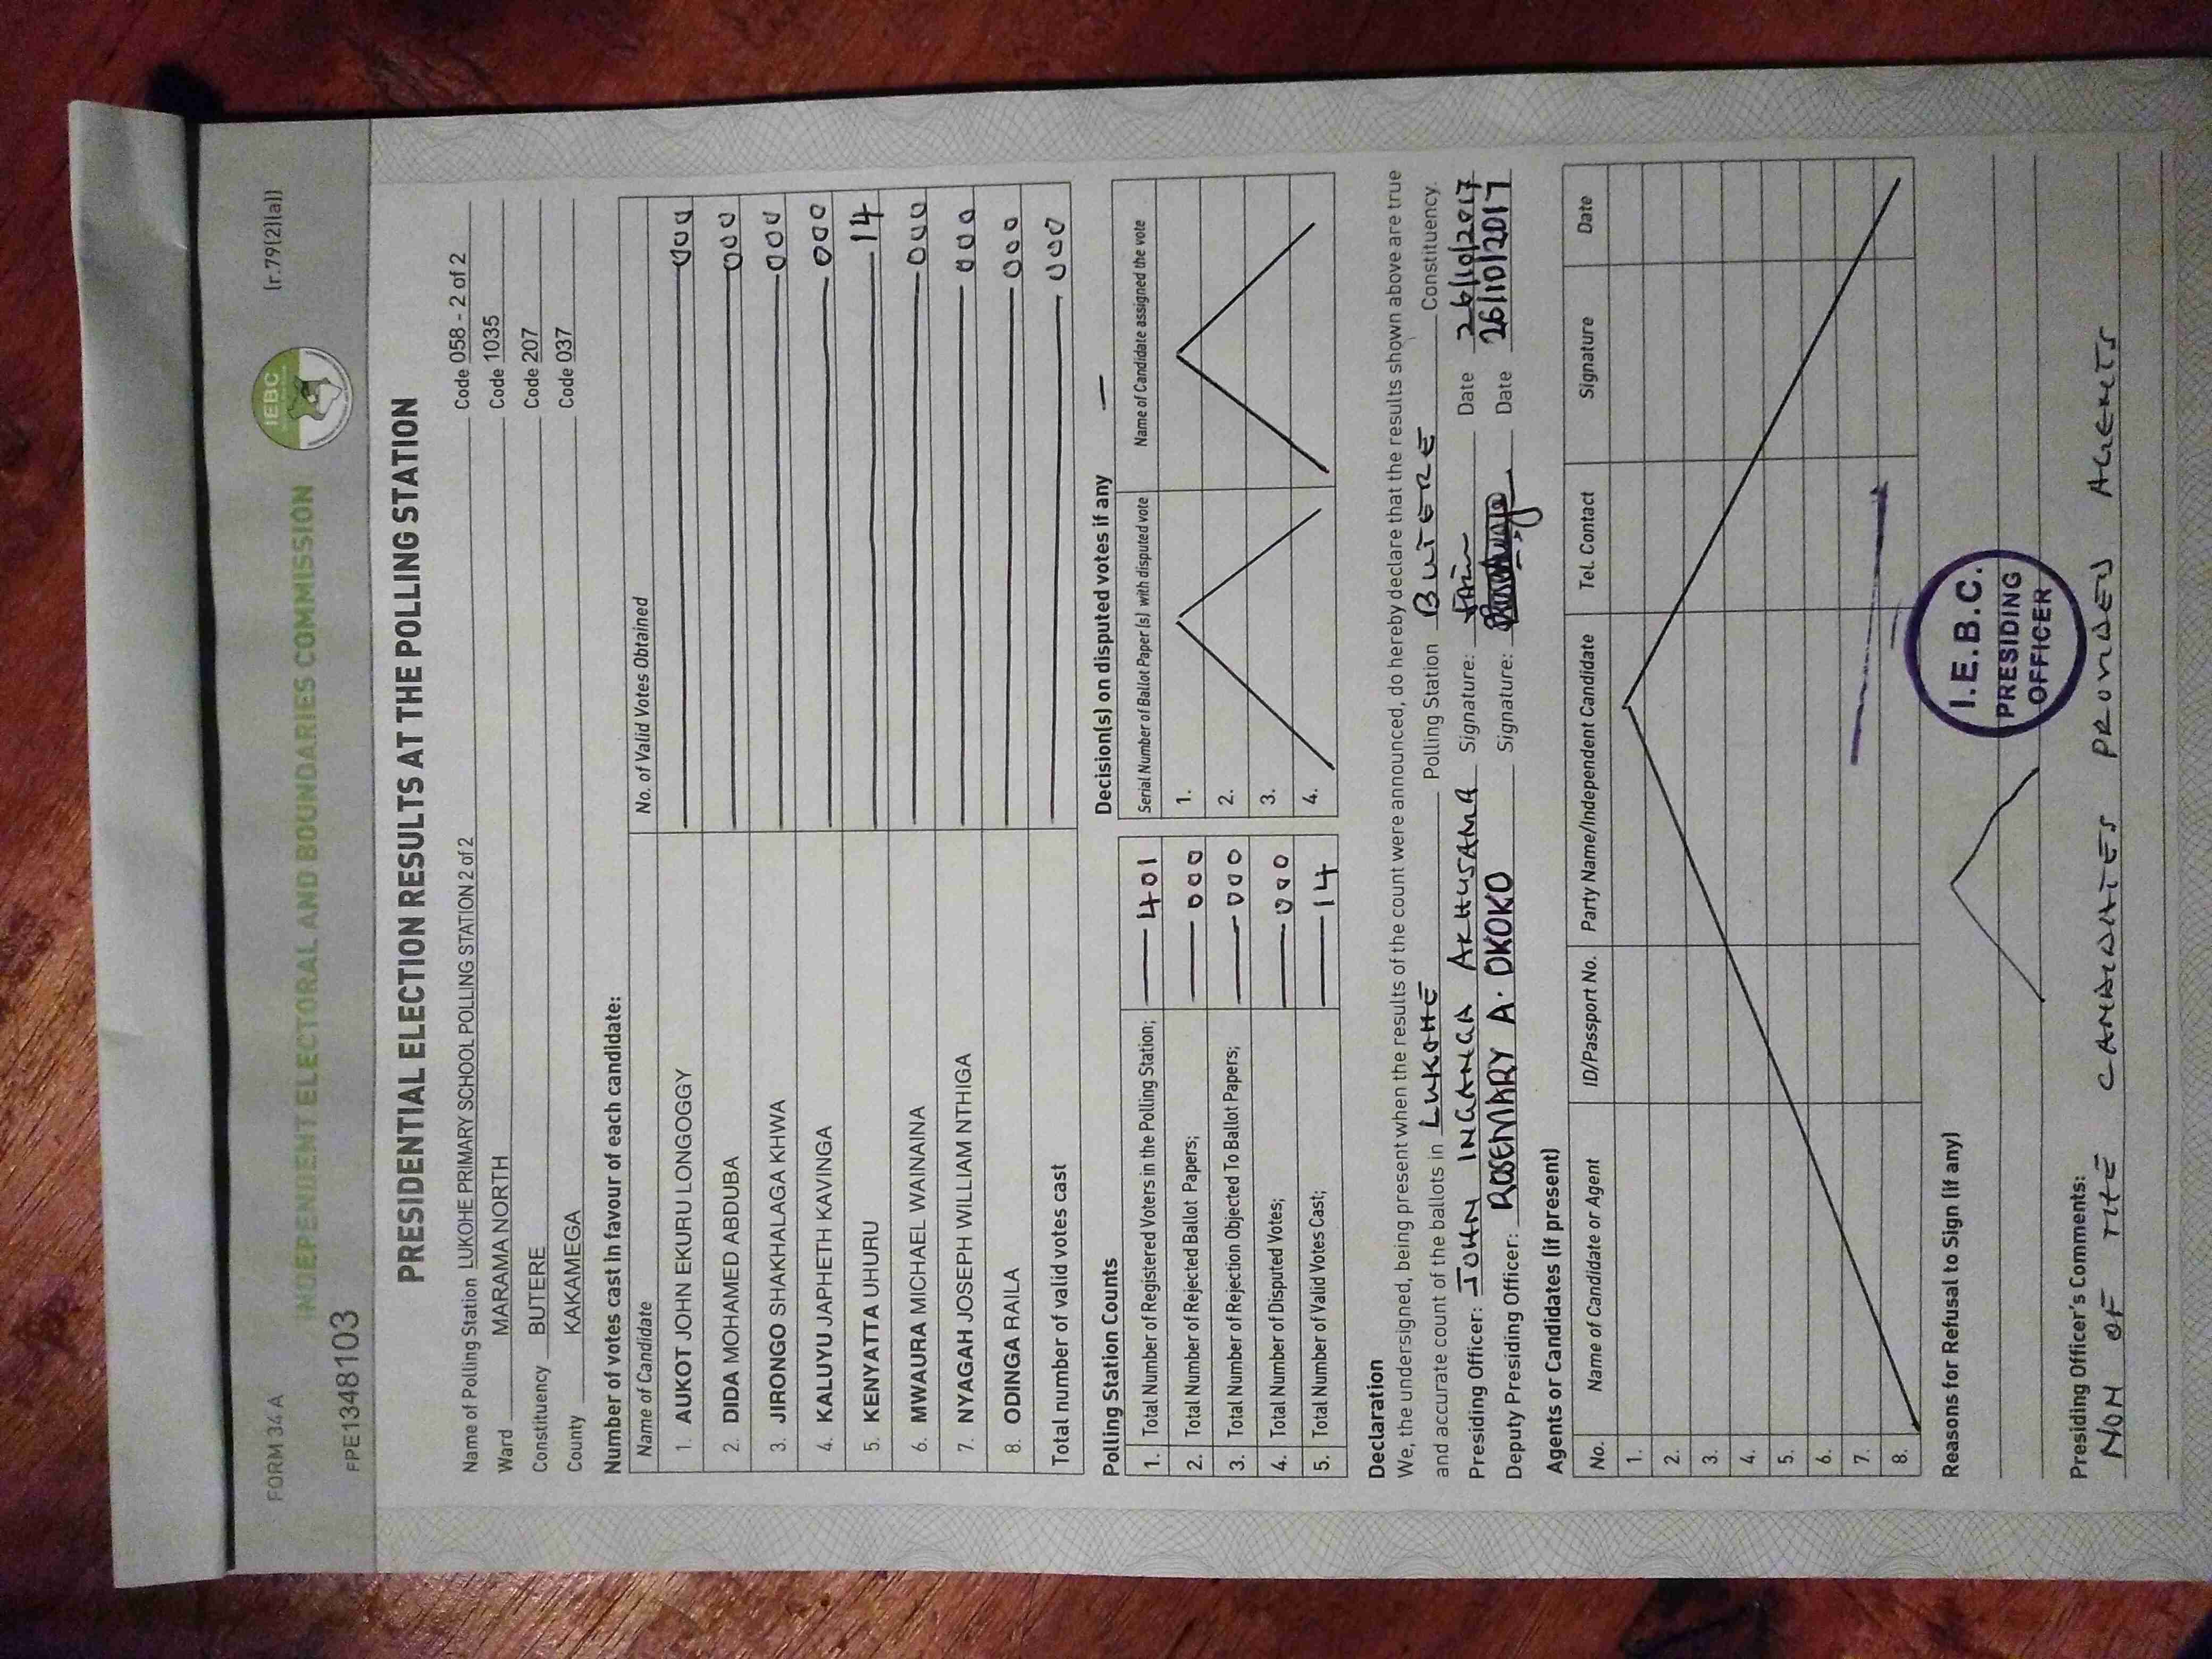 FORM 34 A
(r.79(2)(a))
INDEPENDENT ELECTORAL AND BOUNDARIES COMMISSION
IEBC
FPE1348103
PRESIDENTIAL ELECTION RESULTS AT THE POLLING STATION
Name of Polling Station LUKOHE PRIMARY SCHOOL POLLING STATION 2 of 2 Code 058 - 2 of 2
Ward MARAMA NORTH Code 1035
Constituency BUTERE Code 207
County KAKAMEGA Code 037
Number of votes cast in favour of each candidate:
Name of Candidate No. of Valid Votes Obtained
1. AUKOT JOHN EKURU LONGOGGY 000
2. DIDA MOHAMED ABDUBA 000
3. JIRONGO SHAKHALAGA KHWA 000
4. KALUYU JAPHETH KAVINGA 000
5. KENYATTA UHURU 14
6. MWAURA MICHAEL WAINAINA 000
7. NYAGAH JOSEPH WILLIAM NTHIGA 000
8. ODINGA RAILA 000
Total number of valid votes cast 000
Polling Station Counts
1. Total Number of Registered Voters in the Polling Station; 401
2. Total Number of Rejected Ballot Papers; 000
3. Total Number of Rejection Objected To Ballot Papers; 000
4. Total Number of Disputed Votes; 000
5. Total Number of Valid Votes Cast; 14
Decision(s) on disputed votes if any —
Serial Number of Ballot Paper (s) with disputed vote Name of Candidate assigned the vote
1.
2.
3.
4.
Declaration
We, the undersigned, being present when the results of the count were announced, do hereby declare that the results shown above are true
and accurate count of the ballots in LUKOHE Polling Station BUTERE Constituency.
Presiding Officer: JOHN INGANGA AKHUSAMA Signature: Date 26/10/2017
Deputy Presiding Officer: ROSEMARY A. OKOKO Signature: Date 26/10/2017
Agents or Candidates (if present)
No. Name of Candidate or Agent ID/Passport No. Party Name/Independent Candidate Tel. Contact Signature Date
1.
2.
3.
4.
5.
6.
7.
8.
I.E.B.C.
PRESIDING
OFFICER
Reasons for Refusal to Sign (if any)
Presiding Officer's Comments:
NON OF THE CANDIDATES PROVIDED AGENTS